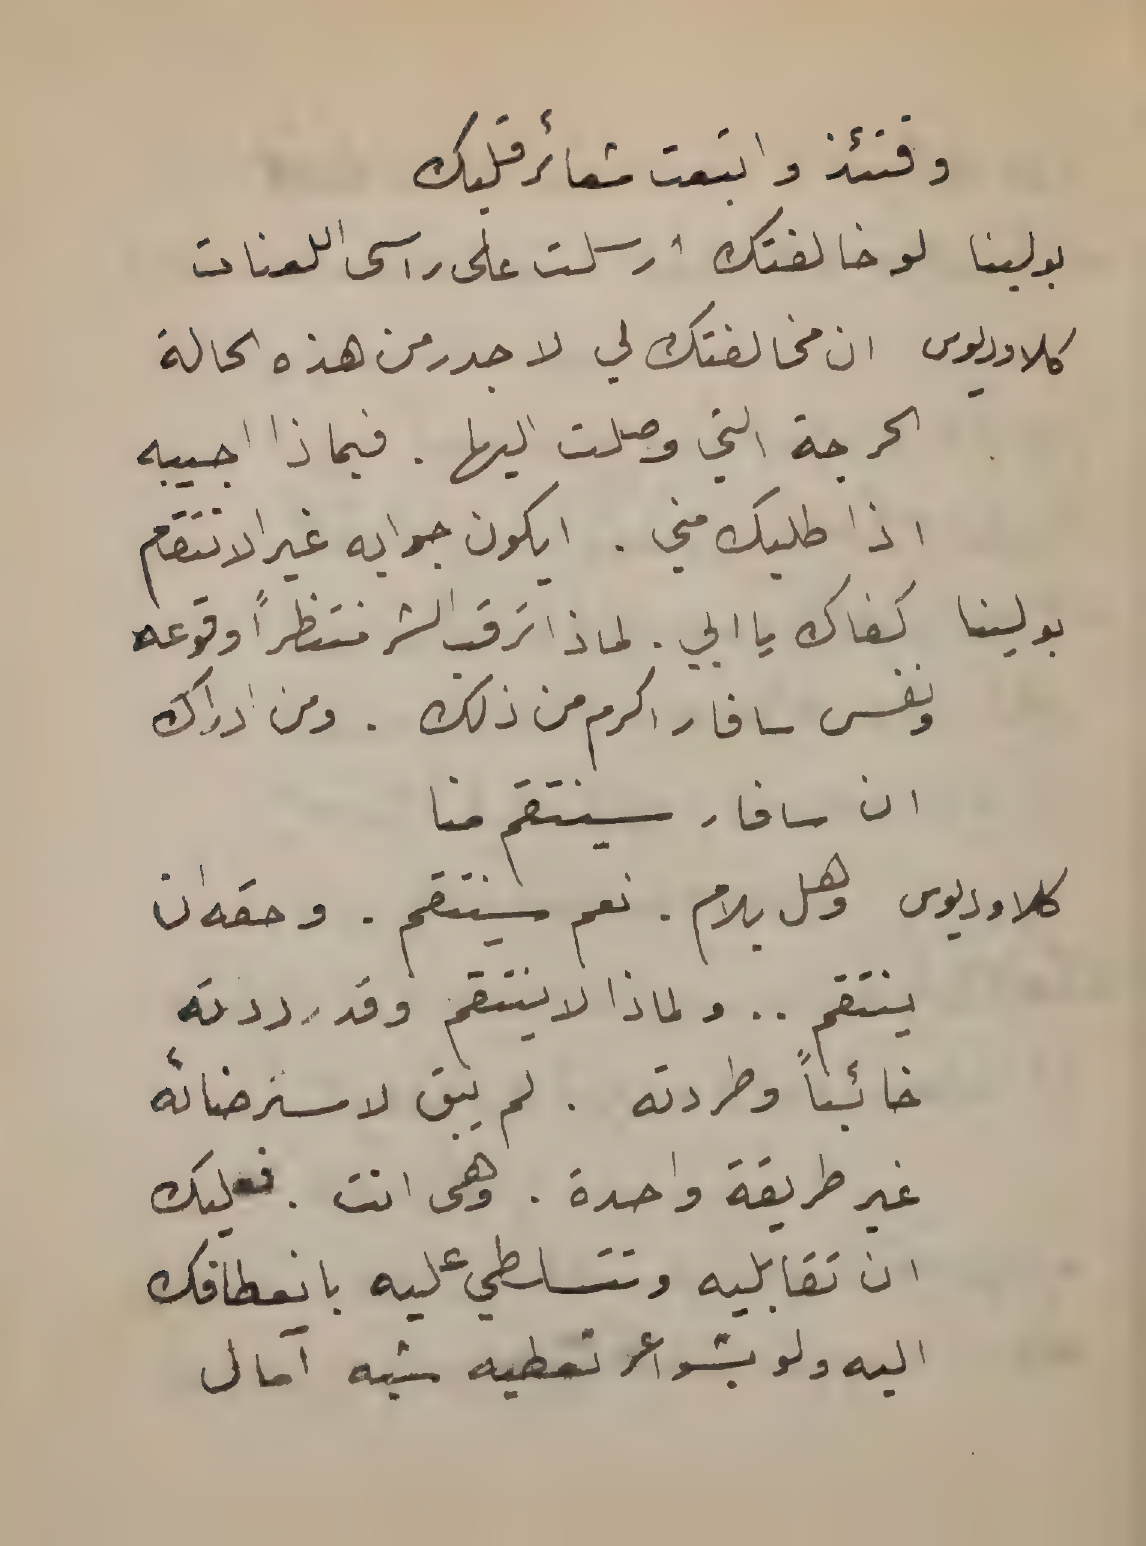 وقتئذ واتبعت شعائر قلبك
بولينا لو خالفتك ارسلت على راسى اللعنات
كلاوديوس ان مخالفتك لي لاجدر من هذه الحالة
الحرجة التي وصلت اليها . فبماذا اجيبه
اذا طلبك مني . ايكون جوابه غير الانتقام
بولينا كفاك يا ابي . لماذا ترقب الشر منتظراً وقوعه
ونفس سافار اكرم من ذلك . ومن ادراك
ان سافار سينتقم منا
كلاوديوس وهل يلام . نعم سينتقم . وحقه ان
ينتقم .. ولماذا لا ينتقم وقد رددته
خائباً وطردته . لم يبق لاسترضائه
غير طريقة واحدة . وهى انت . فعليك
ان تقابليه وتتساطي عليه بانعطافك
اليه ولو بشواعر تعطيه شبه آمال